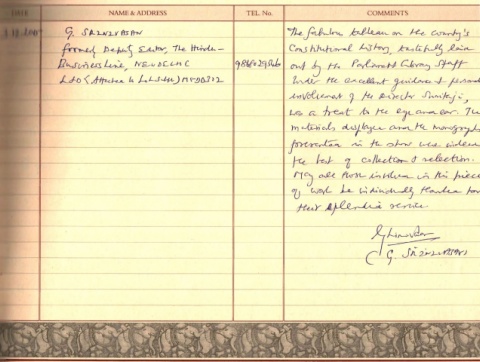 DATE NAME & ADDRESS TEL. No. COMMENTS
G. SRINIVASAN
formerly Deputy Editor, The Hindu
BusinessLine, NEWDELHI
The fabulous tableau on the country's
Constitutional History, tastefully laid
out by the Parliament Library Staff
Under the excellent guidance & personal
involvement of the Director
is a treat to the eye and ear. The
materials displayed and the monographs
presented in the show were indeed
the best of collection & selection.
May all those involved in this piece
of work be individually thanked for
their splendid service
(G. SRINIVASAN)